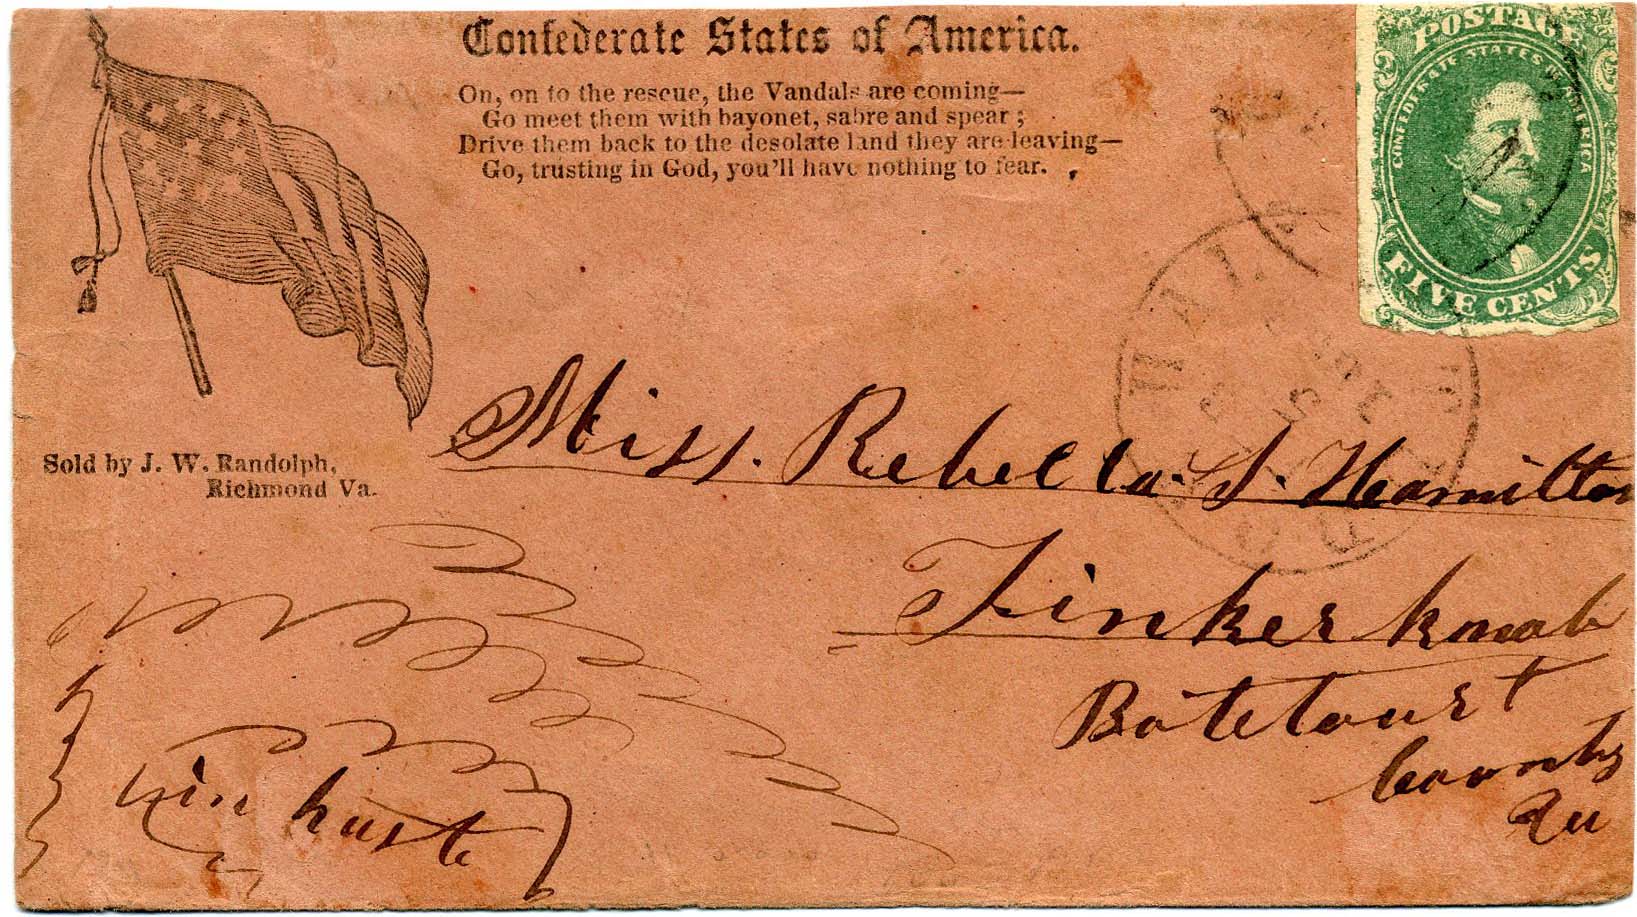 Confederate States of America.
On, on to the rescue, the Vandals are coming—
Go meet them with bayonet, sabre and spear ;
Drive them back to the desolate land they are leaving—
Go, trusting in God, you'll have nothing to fear.
POSTAGE
CONFEDERATE STATES OF AMERICA
FIVE CENTS
Sold by J. W. Randolph,
Richmond Va.
Miss. Rebecca. S. Hamilton
Tinker knob
Botetourt
County
Va
in haste